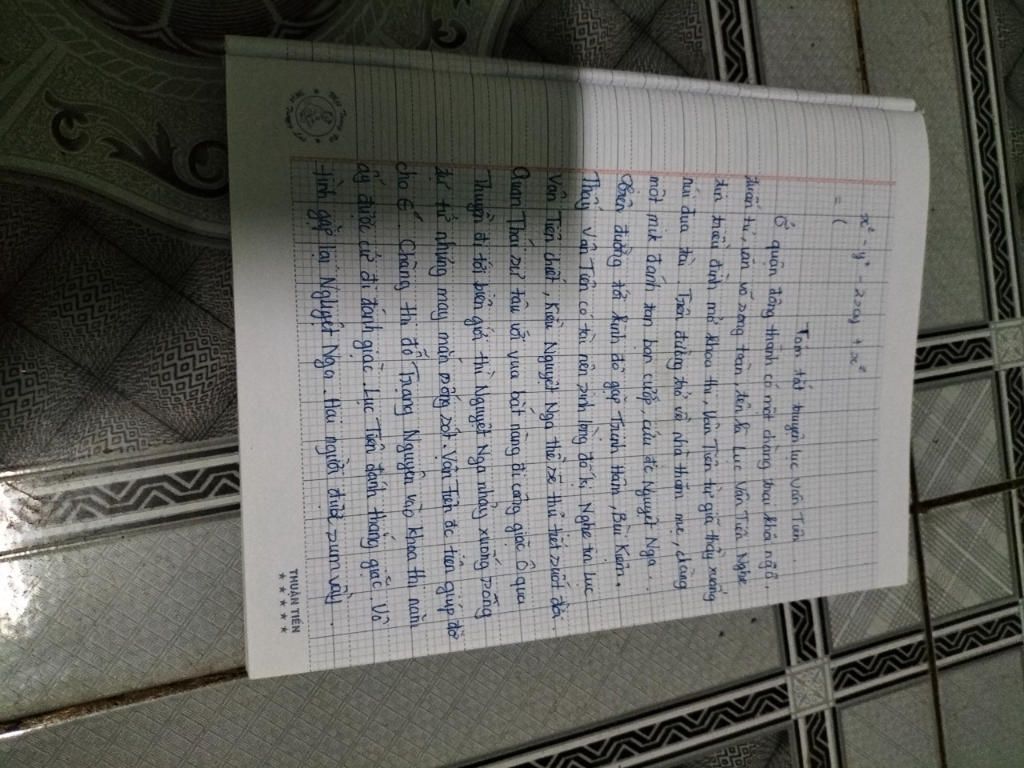 x² - y² - 2xy + x²
= (
Tóm tắt truyện lục Vân Tiên
Ở quận đông thành có một chàng trai khôi ngô,
tuấn tú, văn võ song toàn, tên là Lục Vân Tiên. Nghe
tin triều đình mở khoa thi, Vân Tiên từ giã thầy xuống
núi đua tài. Trên đường trở về nhà thăm mẹ, chàng
một mik đánh tan bọn cướp, cứu đc Nguyệt Nga.
trên đường tới kinh đô gặp Trịnh Hâm, Bùi Kiệm.
Thấy Vân Tiên có tài nên sinh lòng đố kị. Nghe tin Lục
Vân Tiên chết, Kiều Nguyệt Nga thề sẽ thủ tiết suốt đời.
Quan Thái sư tâu với vua bắt nàng đi cống giặc Ô qua
Thuyền đi tới biên giới thì Nguyệt Nga nhảy xuống sông
tự tử nhưng may mắn sống sót. Vân Tiên đc tiên giúp đỡ
cho Chàng thi đỗ Trạng Nguyên vào khoa thi năm
ấy được cử đi đánh giặc. Lục Tiên đánh thắng giặc. Vô
tình gặp lại Nghyệt Nga. Hai người được sum vầy.
THUẬN TIẾN